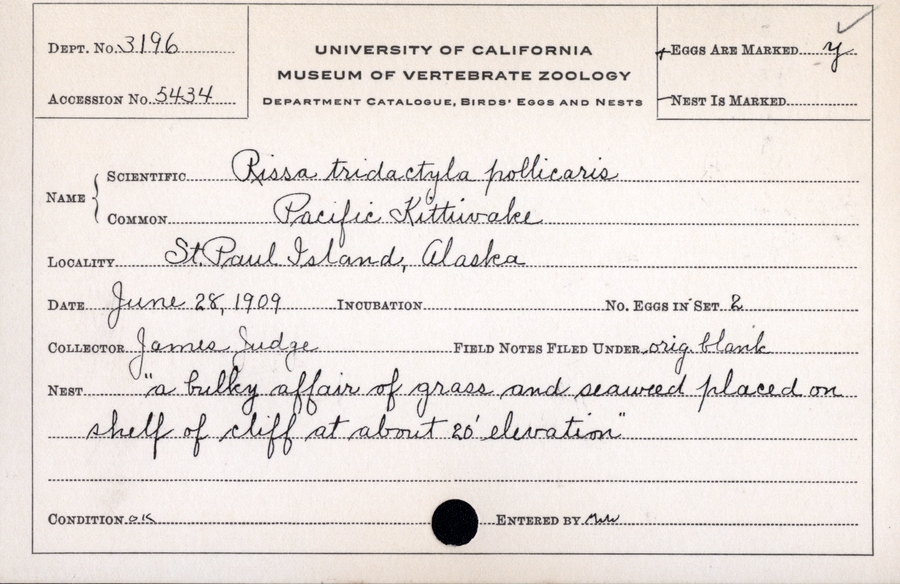 Dept. No. 3196
Accession No. 5434
UNIVERSITY OF CALIFORNIA
MUSEUM OF VERTEBRATE ZOOLOGY
Department Catalogue, Birds' Eggs and Nests
Eggs Are Marked y
Nest Is Marked
Name
Scientific Rissa tridactyla pollicaris
Common Pacific Kittiwake
Locality St. Paul Island, Alaska
Date June 28, 1909 Incubation No. Eggs in Set 2
Collector James Judge Field Notes Filed Under orig. blank
Nest "a bulky affair of grass and seaweed placed on
shelf of cliff at about 20' elevation"
Condition OK Entered by